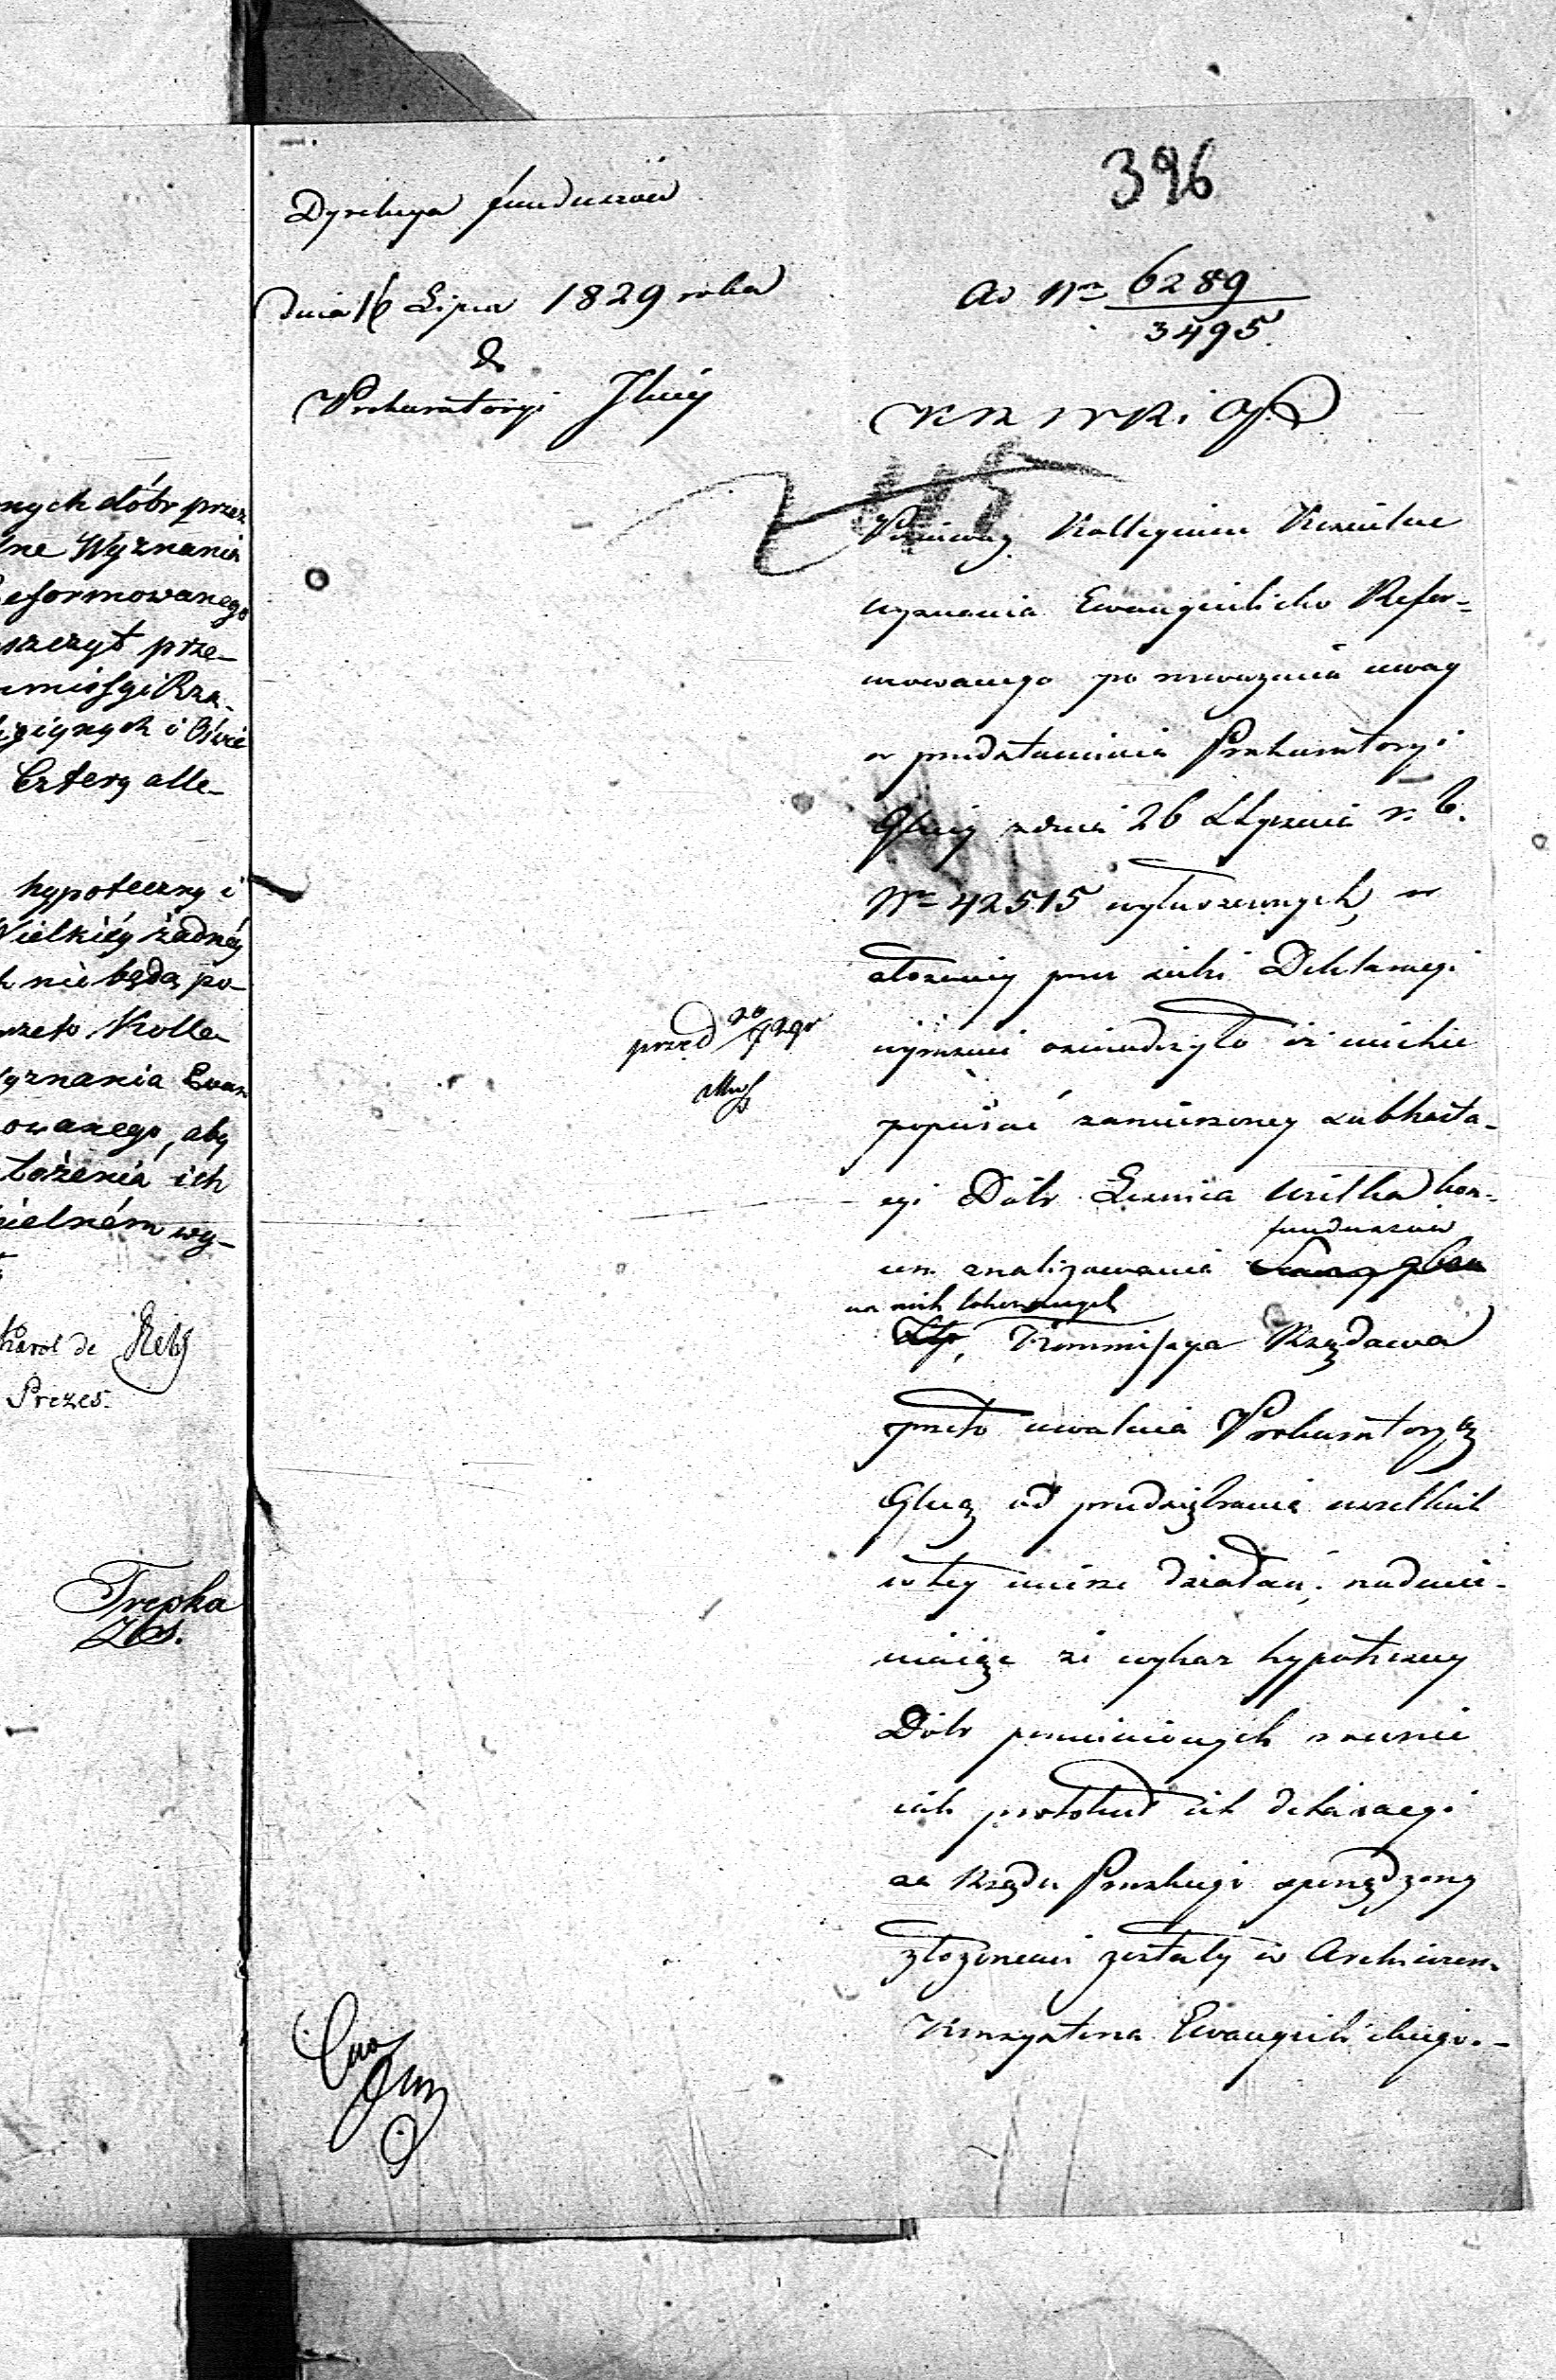 nych dóbr przez
lne Wyznania
Reformowanego
szczyt prze-
mmissyi Rzą-
igiynych i Oświe
Cztery alle-
hypoteczny i
Wielkiéy żadnéy
h nie będą po-
rzeto Kolle-
yznania Ewan
owanego, aby
łożenia ich
ielném wy-
Karol de
Prezes.
Trepka
Dyrekcya funduszów
dnia 16 Lipca 1829 roku
Do
Prokuratoryi Jlney
przęd 20/7 29r
396
Ad Nro 6289
3495.
K R W R i O P
Ponieważ Kollegium Kościelne
wyznania Ewangielicko Refor-
mowanego po rozważeniu uwag
w przedstawieniu Prokuratoryi
Glney z dnia 26 Stycznia r. b.
Nro 42515 wyłuszczonych, w
złożoney przez siebie Deklaracyi
wyraźnie oświadczyło iż niechce
popierać zamierzoney subhasta-
cyi Dóbr Lesznica wielka kon-
funduszów
cem zrealizowania
na nich lokowanych
Kommissya Rządowa
przeto uwalnia Prokuratoryą
Glną od przedsięwzięcia wszelkich
w tey mierze działań; nadmie-
niaiąc że wykaz hypoteczny
Dóbr pomienionych równie
iak protokuł ich deklaracyi
za Rządu Pruskiego sporządzony
złożonemi zostały w Archiwum
Konsystorza Ewangielickiego.-